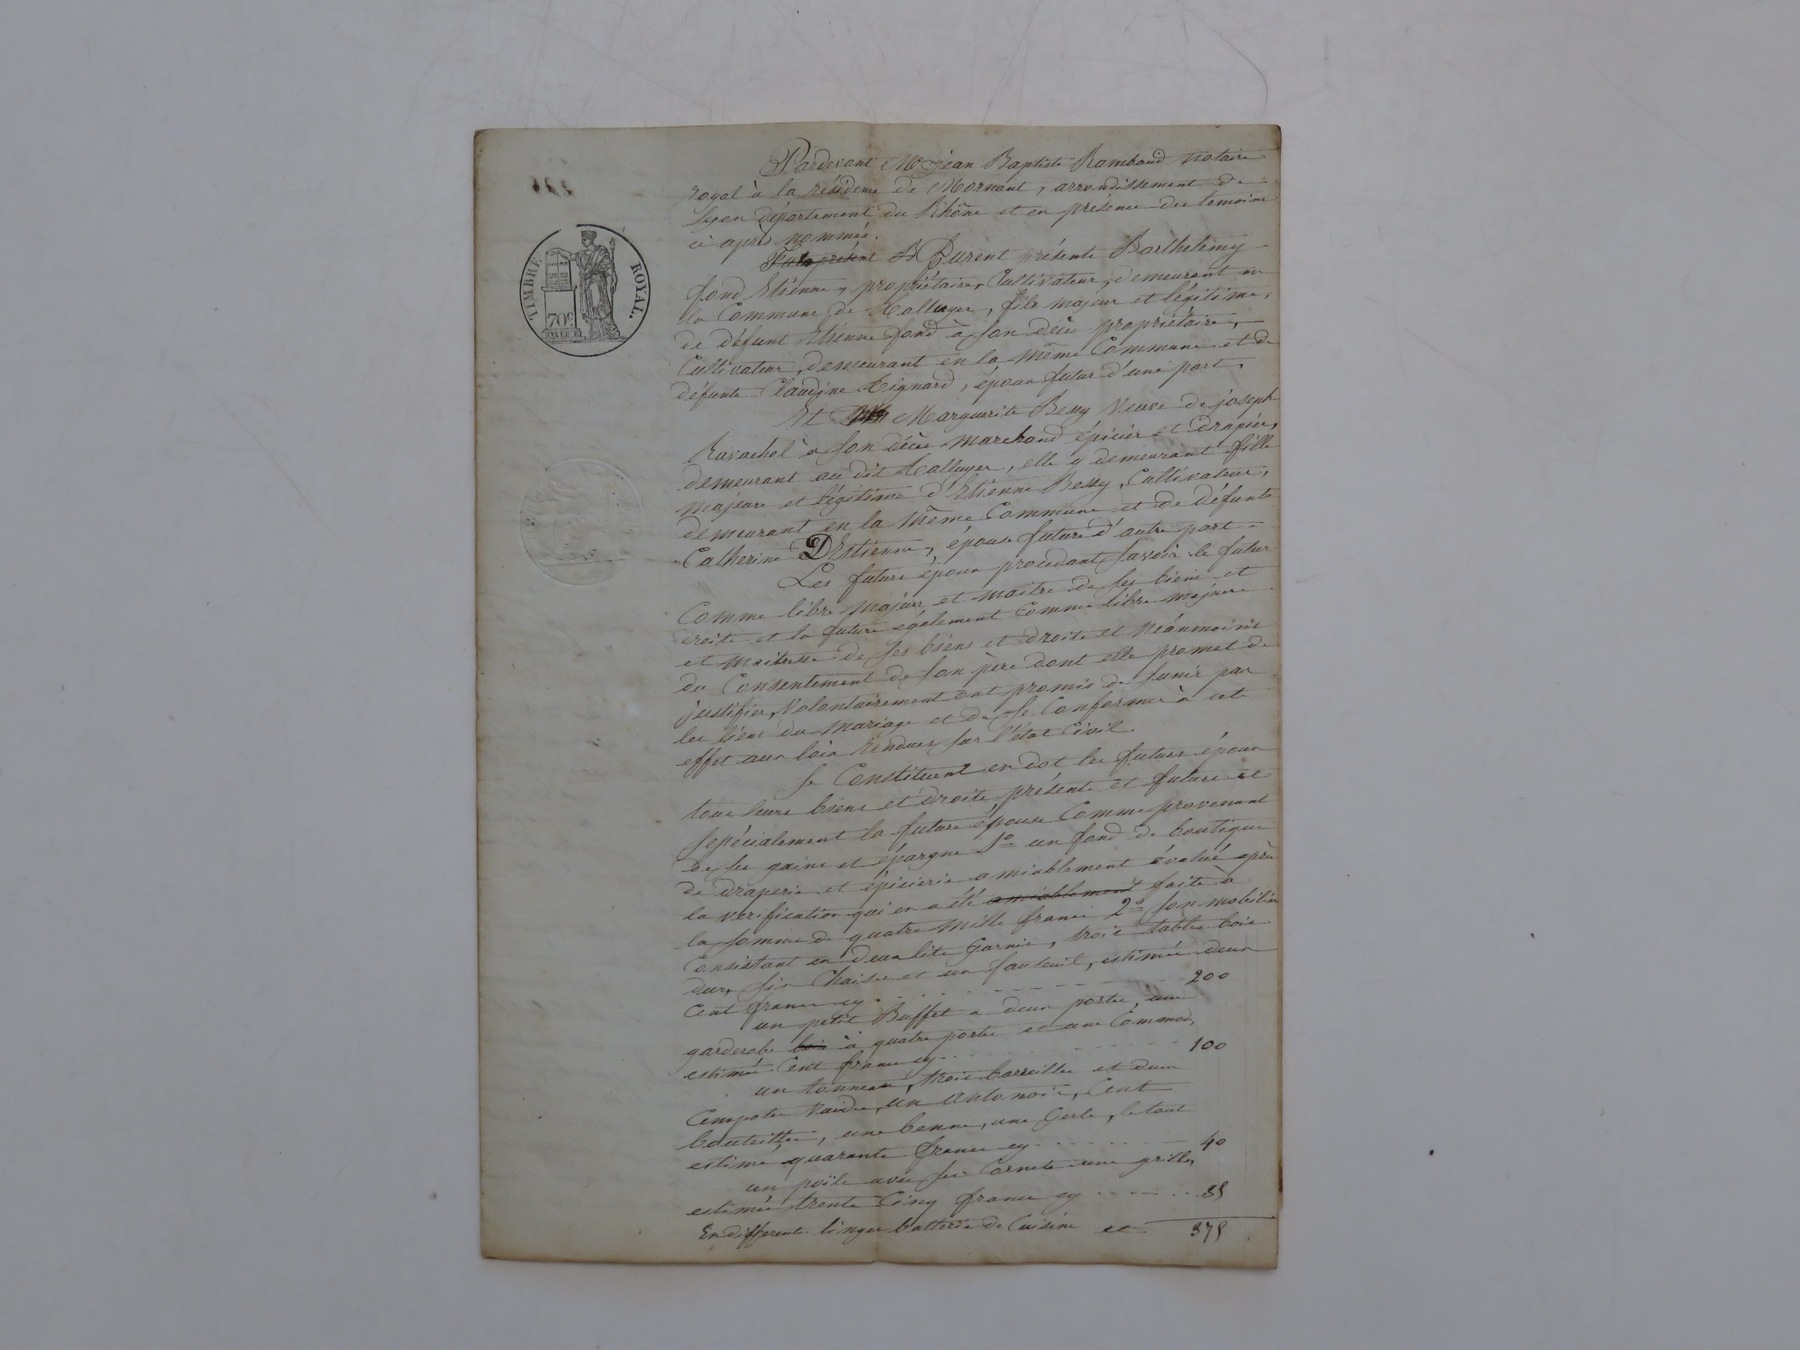 TIMBRE ROYAL.
70c
Pardevant Me jean Baptiste Rambaud notaire
royal à la résidence de Mornant, arrondissement de
Lyon département du Rhône et en présence des temoins
ci après nommés.
Furent présents Barthelemy
fond Etienne, propriétaire, Cultivateur, demeurant en
la Commune de talluyer, fils majeur et légitime,
de défunt Etienne fond à son décès propriétaire,
Cultivateur, demeurant en la même Commune et de
défunte Claudine, époux futur d'une part,
Et Marguerite Bessy Veuve de joseph
Ravachol à son décès marchand épicier et drapier,
demeurant au dit talluyer, elle y demeurant fille
majeure et légitime d'Etienne Bessy, Cultivateur,
demeurant en la même Commune et de défunte
Catherine DEstienne, épouse future d'autre part
Les futurs époux procédant savoir le futur
Comme libre majeur et maitre de ses biens et
droits et la future également Comme libre majeure
et maitresse de ses biens et droits et néanmoins
du Consentement de son père dont elle promet de
justifier, Volontairement ont promis de s'unir par
les liens du mariage et de se Conformer à cet
effet aux lois rendues sur l'état Civil.
Se Constituent en dot les futurs époux
tous leurs biens et droits, présents et futurs et
spécialement la future épouse Comme provenant
de ses gains et épargne 1o un fond de boutique
de draperie et épicierie amiablement évalué après
la vérification qui en a été amiablement faite à
la somme de quatre mille francs 2o son mobilier
Consistant en deux lits garnis, trois tables bois
dur, six Chaises et un fauteuil, estimés deux
Cent francs cy 200
un petit Buffet a deux portes, une
garderobe bois à quatre portes et une Commode,
estimés Cent francs cy 100
un tonneau, trois barrilles et deux
Vuides, un antonoir, Cent
bouteilles, une benne, une Gerle, le tout
estimé quarante francs cy 40
un poële avec ses Cornets une grille,
estimés trente Cinq francs cy 35
En différents linges batterie de Cuisine et 375